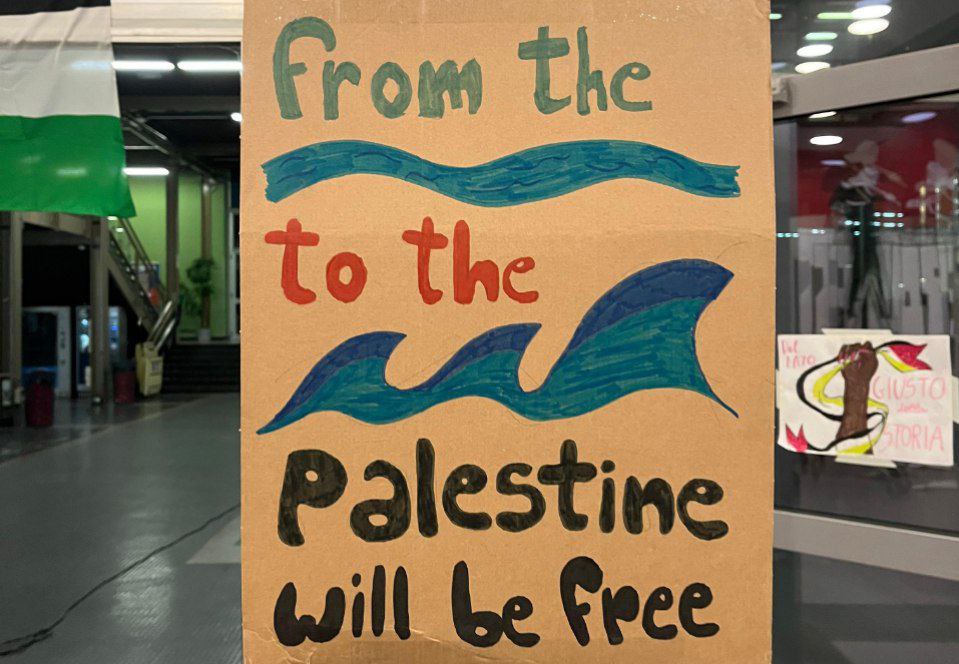 From the
to the
Palestine
will be free
Dal
LATO
GIUSTO
della
STORIA